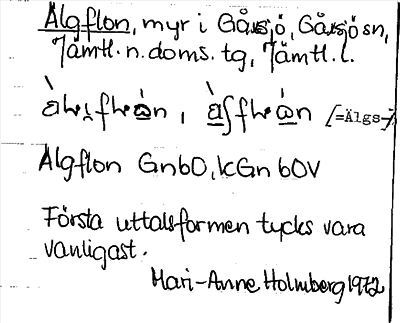 Älgflon, myr i Gåxsjö, Gåxsjö sn,
Jämtl. n. doms. tg, Jämtl. l.
[=Älgs-]
Älgflon Gnb0, kGn b0V
Första uttalsformen tycks vara
vanligast.
Mari-Anne Holmberg 1972